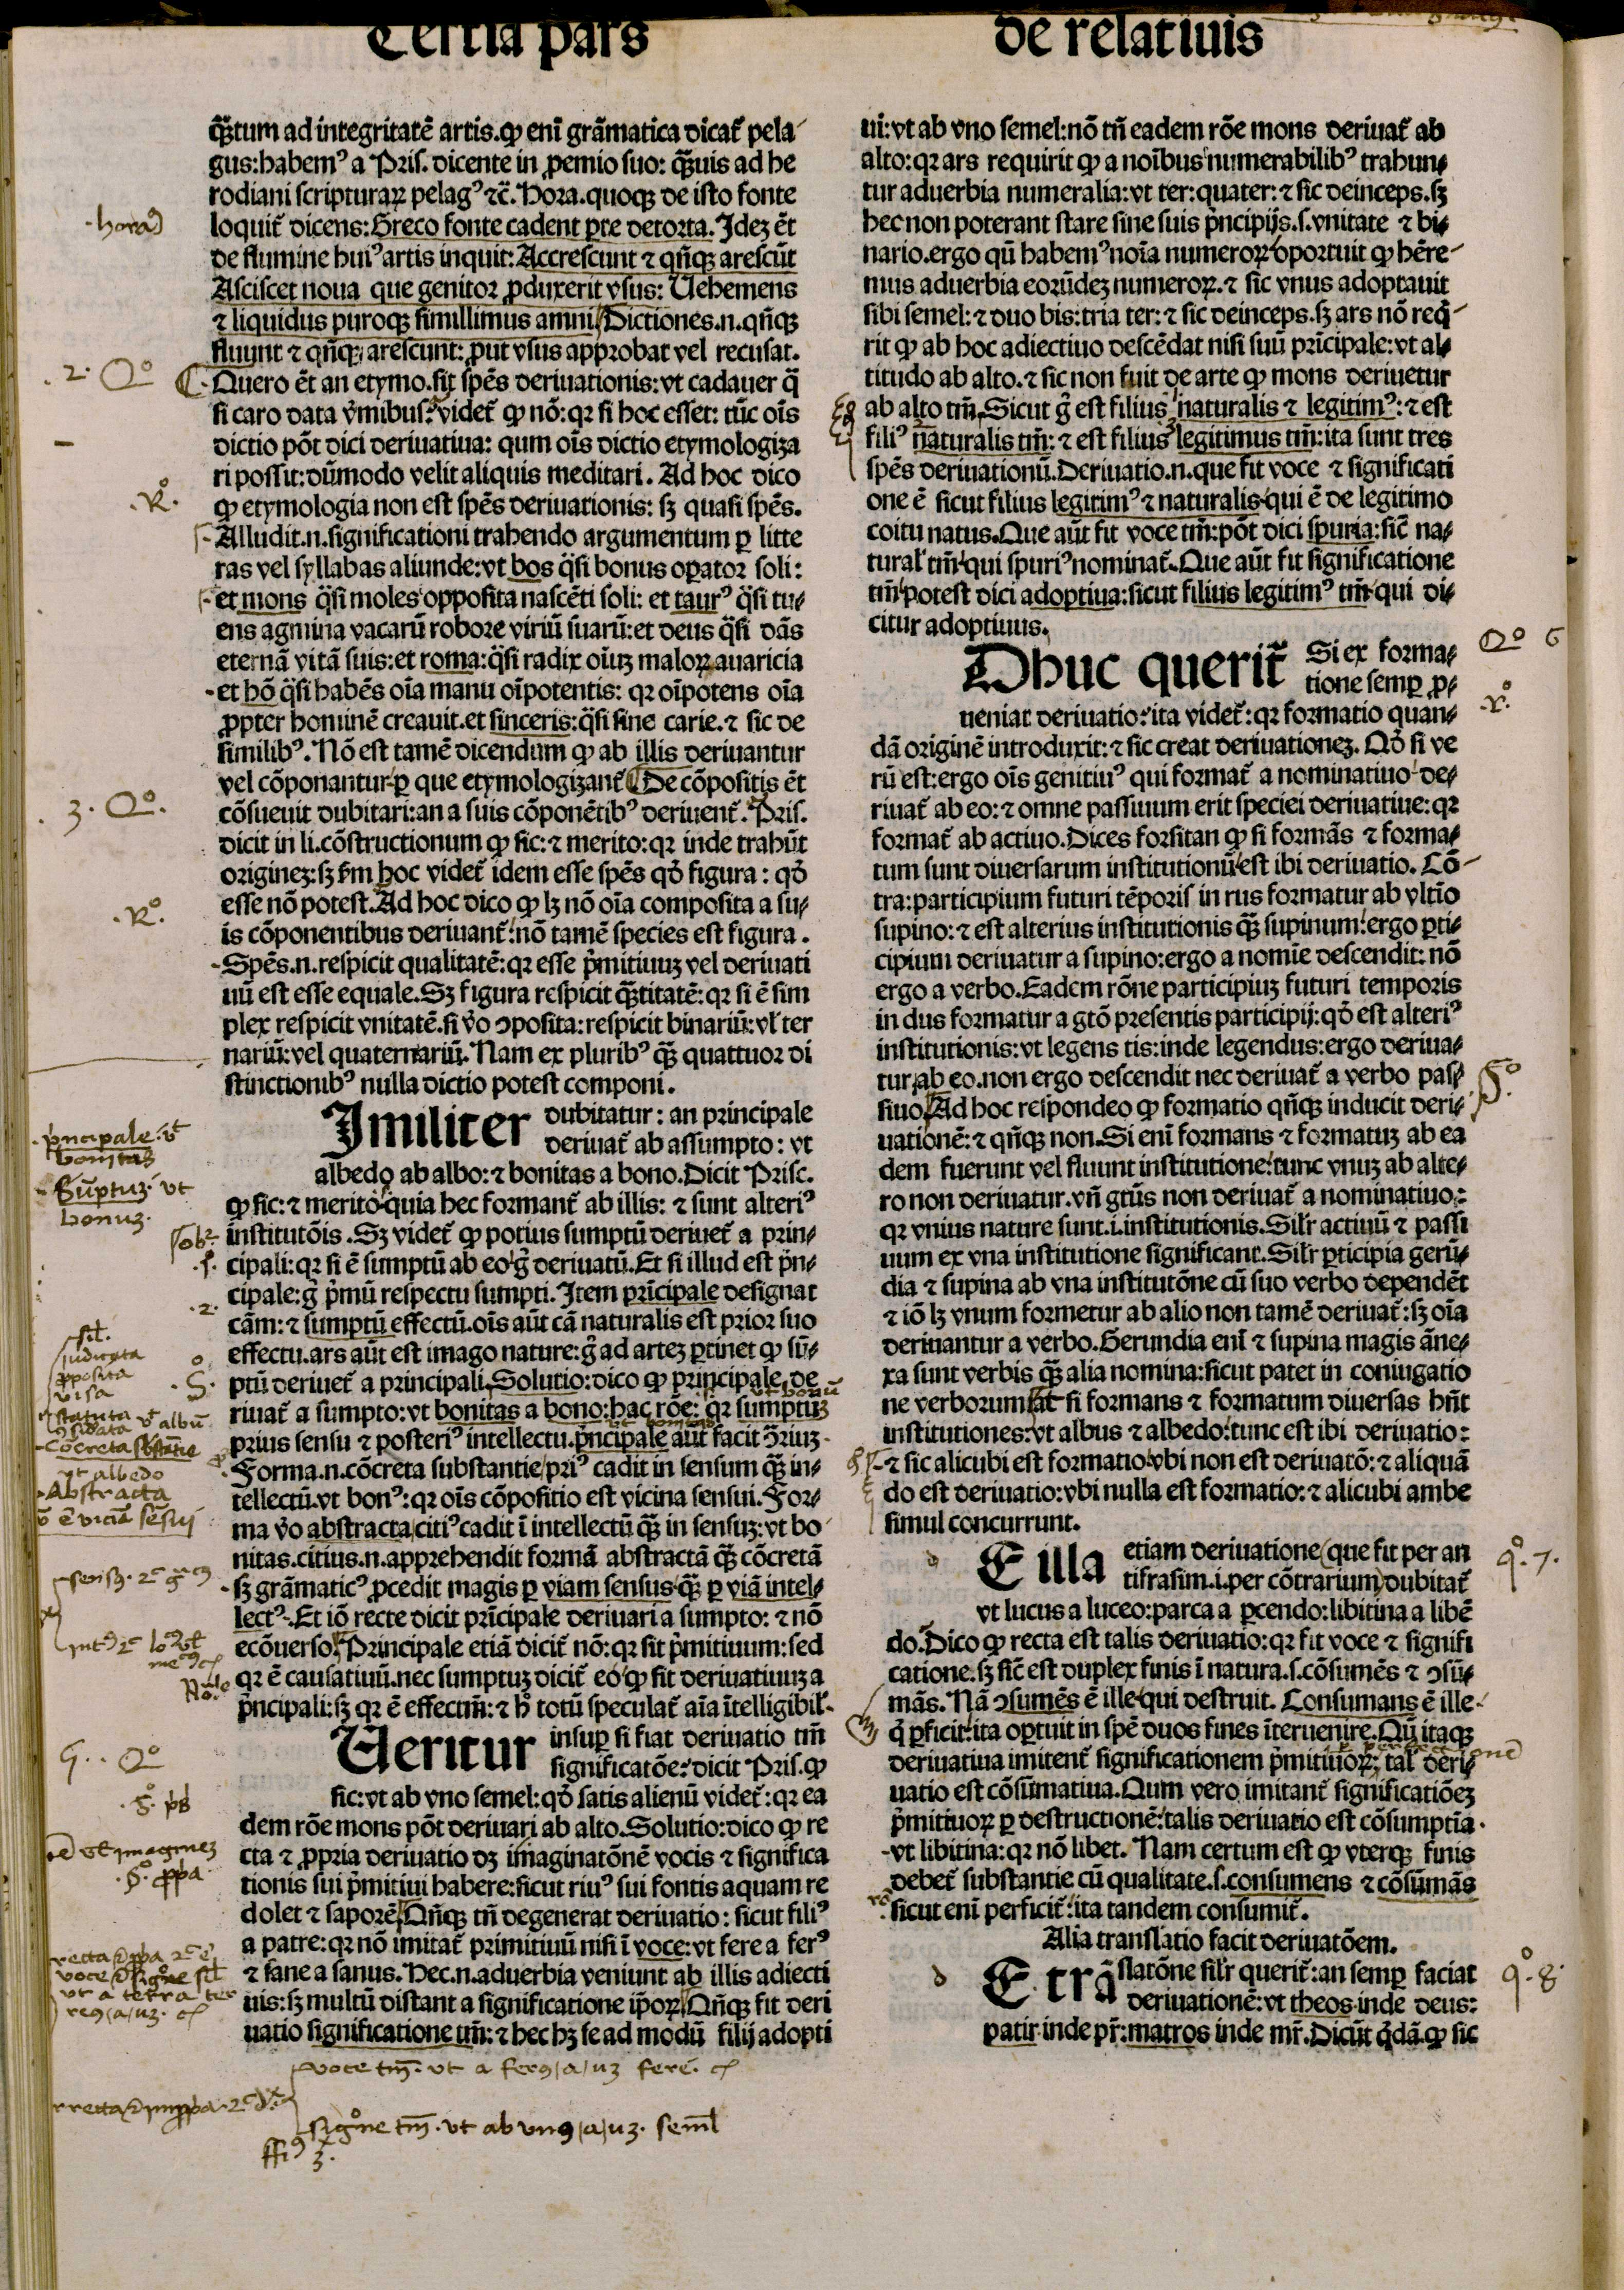 Tertia pars
de relatiuis
q̃ꝫtum ad integritatē artis.ꝙ enī grāmatica dicat̃ pela
gus:habemꝰ a Pris. dicente in ꝓemio suo: q̃ꝫuis ad he
rodiani scripturaꝝ pelagꝰ ⁊c̃. Hora.quoqꝫ de isto fonte
loquit̃ dicens:Greco fonte cadent ꝑce detorta.Idez ēt
de flumine huiꝰ artis inquit:Accrescunt ⁊ qñqꝫ arescūt
Asciscet noua que genitor ꝓduxerit vsus: Uehemens
⁊ liquidus puroqꝫ simillimus amni/Dictiones.n.qñqꝫ
fluunt ⁊ qñqꝫ arescunt: ꝓut vsus approbat vel recusat.
Quero ēt an etymo.sit spēs deriuationis:vt cadauer q̃
si caro data v̓mibus:videt̃ ꝙ nō:qꝛ si hoc esset: tūc oīs
dictio pōt dici deriuatiua: qum oīs dictio etymologiza
ri possit:dūmodo velit aliquis meditari. Ad hoc dico
ꝙ etymologia non est spēs deriuationis: sꝫ quasi spēs.
Alludit.n.significationi trahendo argumentum ꝑ litte
ras vel syllabas aliunde:vt bos q̃si bonus oꝑator soli:
et mons q̃si moles opposita nascēti soli: et taurꝰ q̃si tu⸗
ens agmina vacarū robore viriū suarū:et deus q̃si dās
eternā vitā suis:et roma:q̃si radix oīuꝫ maloꝝ auaricia
et hō q̃si habēs oīa manu oīpotentis: qꝛ oīpotens oīa
ꝓpter hominē creauit.et sinceris:q̃si sine carie.⁊ sic de
similibꝰ. Nō est tamē dicendum ꝙ ab illis deriuantur
vel cōponantur ꝑ que etymologizant̃ De cōpositis ēt
cōsueuit dubitari:an a suis cōponētibꝰ deriuent̃. Pris.
dicit in li.cōstructionum ꝙ sic:⁊ merito:qꝛ inde trahūt
originez:sꝫ ẜm hoc videt̃ idem esse spēs qd̓ figura: qd̓
esse nō potest.Ad hoc dico ꝙ lꝫ nō oīa composita a su⸗
is cōponentibus deriuant̃:nō tamē species est figura.
Spēs.n.respicit qualitatē:qꝛ esse p̓mitiuuꝫ vel deriuati
uū est esse equale.Sꝫ figura respicit q̃ꝫtitatē:qꝛ si ē sim
plex respicit vnitatē.si v̓o ꝯposita:respicit binariū:vl̓ ter
nariū:vel quaternariū.Nam ex pluribꝰ q̃ꝫ quattuor di
stinctionibꝰ nulla dictio potest componi.
Imiliter dubitatur: an principale
deriuat̃ ab assumpto: vt
albedo ab albo:⁊ bonitas a bono.Dicit Prisc.
ꝙ sic:⁊ merito quia hec formant̃ ab illis: ⁊ sunt alteriꝰ
institutōis.Sꝫ videt̃ ꝙ potius sumptū deriuet̃ a prin⸗
cipali:qꝛ si ē sumptū ab eo g̊ deriuatū.Et si illud est p̓n⸗
cipale:g̊ p̓mū respectu sumpti.Item prīcipale designat
cām:⁊ sumptū effectū.oīs aūt cā naturalis est prior suo
effectu.ars aūt est imago nature:g̊ ad artez ꝑtinet ꝙ sū⸗
ptū deriuet̃ a principali Solutio:dico ꝙ principale de
riuat̃ a sumpto:vt bonitas a bono:hac rōe: qꝛ sumptuꝫ
prius sensu ⁊ posteriꝰ intellectu.p̓ncipale aūt facit ꝯ̃riuꝫ
Forma.n.cōcreta substantie priꝰ cadit in sensum q̃ꝫ in⸗
tellectū.vt bonꝰ:qꝛ oīs cōpositio est vicina sensui.For⸗
ma v̓o abstracta citiꝰ cadit ī intellectū q̃ꝫ in sensuꝫ:vt bo
nitas.citius.n.apprehendit formā abstractā q̃ꝫ cōcretā
sꝫ grāmaticꝰ ꝓcedit magis ꝑ viam sensus q̃ꝫ ꝑ viā intel⸗
lectꝰ.Et iō recte dicit prīcipale deriuari a sumpto: ⁊ nō
ecōuerso.Principale etiā dicit̃ nō:qꝛ sit p̓mitiuum:sed
qꝛ ē causatiuū.nec sumptuꝫ dicit̃ eo ꝙ sit deriuatiuuꝫ a
p̓ncipali:sꝫ qꝛ ē effectm̄:⁊ h̓ totū speculat̃ aīa ītelligibil̓.
Ueritur insuꝑ si fiat deriuatio tm̄
significatōe:dicit Pris.ꝙ
sic:vt ab vno semel:qd̓ satis alienū videt̃:qꝛ ea
dem rōe mons pōt deriuari ab alto.Solutio:dico ꝙ re
cta ⁊ ꝓpria deriuatio dꝫ imaginatōnē vocis ⁊ significa
tionis sui p̓mitiui habere:sicut riuꝰ sui fontis aquam re
dolet ⁊ saporē.Qñqꝫ tn̄ degenerat deriuatio: sicut filiꝰ
a patre:qꝛ nō imitat̃ primitiuū nisi ī voce:vt fere a ferꝰ
⁊ sane a sanus.Hec.n.aduerbia veniunt ab illis adiecti
uis:sꝫ multū distant a significatione ip̄oꝝ Qñqꝫ fit deri
uatio significatione tm̄:⁊ hec hꝫ se ad modū filij adopti
ui:vt ab vno semel:nō tn̄ eadem rōe mons deriuat̃ ab
alto:qꝛ ars requirit ꝙ a noībus numerabilibꝰ trahun⸗
tur aduerbia numeralia:vt ter:quater:⁊ sic deinceps.sꝫ
hec non poterant stare sine suis p̓ncipijs.s.vnitate ⁊ bi⸗
nario.ergo qū habemꝰ noīa numeroꝝ oportuit ꝙ hēre
mus aduerbia eorūdeꝫ numeroꝝ.⁊ sic vnus adoptauit
sibi semel:⁊ duo bis:tria ter:⁊ sic deinceps.sꝫ ars nō req̓
rit ꝙ ab hoc adiectiuo descēdat nisi suū prīcipale:vt al⸗
titudo ab alto.⁊ sic non fuit de arte ꝙ mons deriuetur
ab alto tm̄.Sicut g̊ est filius naturalis ⁊ legitimꝰ:⁊ est
filiꝰ naturalis tm̄:⁊ est filius legitimus tm̄:ita sunt tres
spēs deriuationū.Deriuatio.n.que fit voce ⁊ significati
one ē sicut filius legitimꝰ ⁊ naturalis qui ē de legitimo
coitu natus.Que aūt fit voce tm̄:pōt dici spuria:sic̄ na⸗
tural̓ tm̄ qui spuriꝰ nominat̃.Que aūt fit significatione
tm̄ potest dici adoptiua:sicut filius legitimꝰ tm̄ qui di⸗
citur adoptiuus.
Dhuc querit̃ Si ex forma⸗
tione semꝑ ꝓ⸗
ueniat deriuatio:ita videt̃:qꝛ formatio quan⸗
dā originē introduxit:⁊ sic creat deriuationeꝫ. Qd̓ si ve
rū est:ergo oīs genitiuꝰ qui format̃ a nominatiuo de⸗
riuat̃ ab eo:⁊ omne passiuum erit speciei deriuatiue:qꝛ
format̃ ab actiuo.Dices forsitan ꝙ si formās ⁊ forma⸗
tum sunt diuersarum institutionū est ibi deriuatio. Cō
tra:participium futuri tēporis in rus formatur ab vltīo
supino:⁊ est alterius institutionis q̃ꝫ supinum:ergo ꝑti⸗
cipium deriuatur a supino:ergo a nomīe descendit: nō
ergo a verbo.Eadem rōne participiuꝫ futuri temporis
in dus formatur a gtō presentis participij:qd̓ est alteriꝰ
institutionis:vt legens tis:inde legendus:ergo deriua⸗
tur ab eo.non ergo descendit nec deriuat̃ a verbo pas⸗
siuo Ad hoc respondeo ꝙ formatio qñqꝫ inducit deri⸗
uationē:⁊ qñqꝫ non.Si enī formans ⁊ formatuꝫ ab ea
dem fuerunt vel fluunt institutione:tunc vnuꝫ ab alte⸗
ro non deriuatur.vn̄ gtūs non deriuat̃ a nominatiuo:
qꝛ vnius nature sunt.i.institutionis.Sil̓r actiuū ⁊ passi
uum ex vna institutione significant.Sil̓r ꝑticipia gerū⸗
dia ⁊ supina ab vna institutōne cū suo verbo dependēt
⁊ iō lꝫ vnum formetur ab alio non tamē deriuat̃:sꝫ oīa
deriuantur a verbo.Gerundia enī ⁊ supina magis āne⸗
xa sunt verbis q̃ꝫ alia nomina:sicut patet in coniugatio
ne verborum at si formans ⁊ formatum diuersas hn̄t
institutiones:vt albus ⁊ albedo:tunc est ibi deriuatio:
⁊ sic alicubi est formatio vbi non est deriuatō:⁊ aliquā
do est deriuatio:vbi nulla est formatio:⁊ alicubi ambe
simul concurrunt.
E illa etiam deriuatione que fit per an
tifrasim.i.per cōtrarium dubitat̃
vt lucus a luceo:parca a ꝑcendo:libitina a libē
do.Dico ꝙ recta est talis deriuatio:qꝛ fit voce ⁊ signifi
catione.sꝫ sic̄ est duplex finis ī natura.s.cōsumēs ⁊ ꝯsū⸗
mās. Nā ꝯsumēs ē ille qui destruit. Consumans ē ille
q̓ ꝑficit:ita oꝑtuit in spē duos fines īteruenire.Qū itaqꝫ
deriuatiua imitent̃ significationem p̓mitiuoꝝ: tal̓ deri⸗
uatio est cōsūmatiua.Qum vero imitant̃ significatiōeꝫ
p̓mitiuoꝝ ꝑ destructionē:talis deriuatio est cōsumptīa.
vt libitina:qꝛ nō libet. Nam certum est ꝙ vterqꝫ finis
debet̃ substantie cū qualitate.s.consumens ⁊ cōsūmās
sicut enī perficit̃:ita tandem consumit̃.
Alia translatio facit deriuatōem.
E trā slatōne sil̓r querit̃:an semꝑ faciat
deriuationē:vt theos inde deus:
patir inde pr̄:matros inde mr̄.Dicūt q̓dā.ꝙ sic
2. Qº
3. Qº.
Rº.
Qº 6
qº. 7.
qº. 8.
p̓ncipale. vt
bonitas
Sūptuꝫ. vt
bonuꝫ.
Abstracta
voce tm̄. vt a ferꝰ/a/uꝫ fere.
signºne tm̄. vt ab vnꝰ/a/uꝫ. seml̓